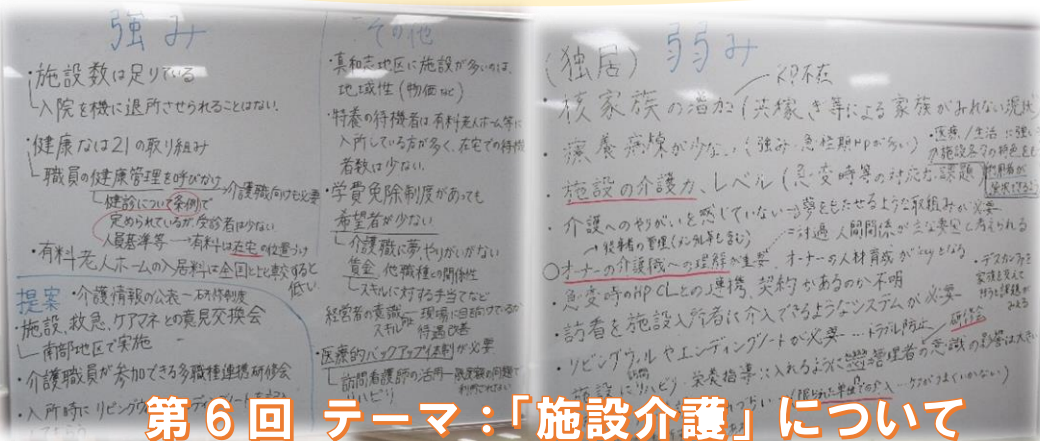 強み
・施設数は足りている
入院を機に退所させられることはない。
・健康なは21の取り組み
職員の健康管理を呼びかけ→介護職向けも必要
健診について条例で
定められているが、受診者は少ない
人員基準等―有料は在宅の位置づけ
・有料老人ホームの入居料は全国と比較すると
低い
提案
・介護情報の公表―研修制度
・施設、救急、ケアマネとの意見交換会
南部地区で実施
・介護職員が参加できる多職種連携研修会
・入所時にリビングウ
その他
・真和志地区に施設が多いのは、
地域性(物価など)
・特養の待機者は有料老人ホーム等に
入所している方が多く、在宅での待機
者数は少ない。
・学費免除制度があっても
希望者が少ない
介護職に夢、やりがいがない
賃金、他職種との関係性
スキルに対する手当てなど
経営者の意識
スキル
現場に目を向けているか
待遇改善
・医療的バックアップ体制が必要
訪問看護師の活用
リハビリ
弱み
(独居)
・核家族の増加(共稼ぎ等による家族がおれない現状
・療養病棟が少ない(強み:急性期HPが多い)
・医療/生活に強い
・施設の介護力、レベル(急変時等の対応が課題
介護へのやりがいを感じていない⇒夢をもたせるような取組みが必要
人間関係が主な要因と考えられる
○オーナーの介護職への理解が重要 オーナーの人材育成が
・急変時のHP CLとの連携、契約があるのか不明
・訪看を施設入所者に介入できるようなシステムが必要
研修会
リビングウィルやエンディングノートが必要…トラブル防止
管理者の意識の影響は大きい
施設にリハビリ・栄養指導に入れるように
第6回 テーマ:「施設介護」について